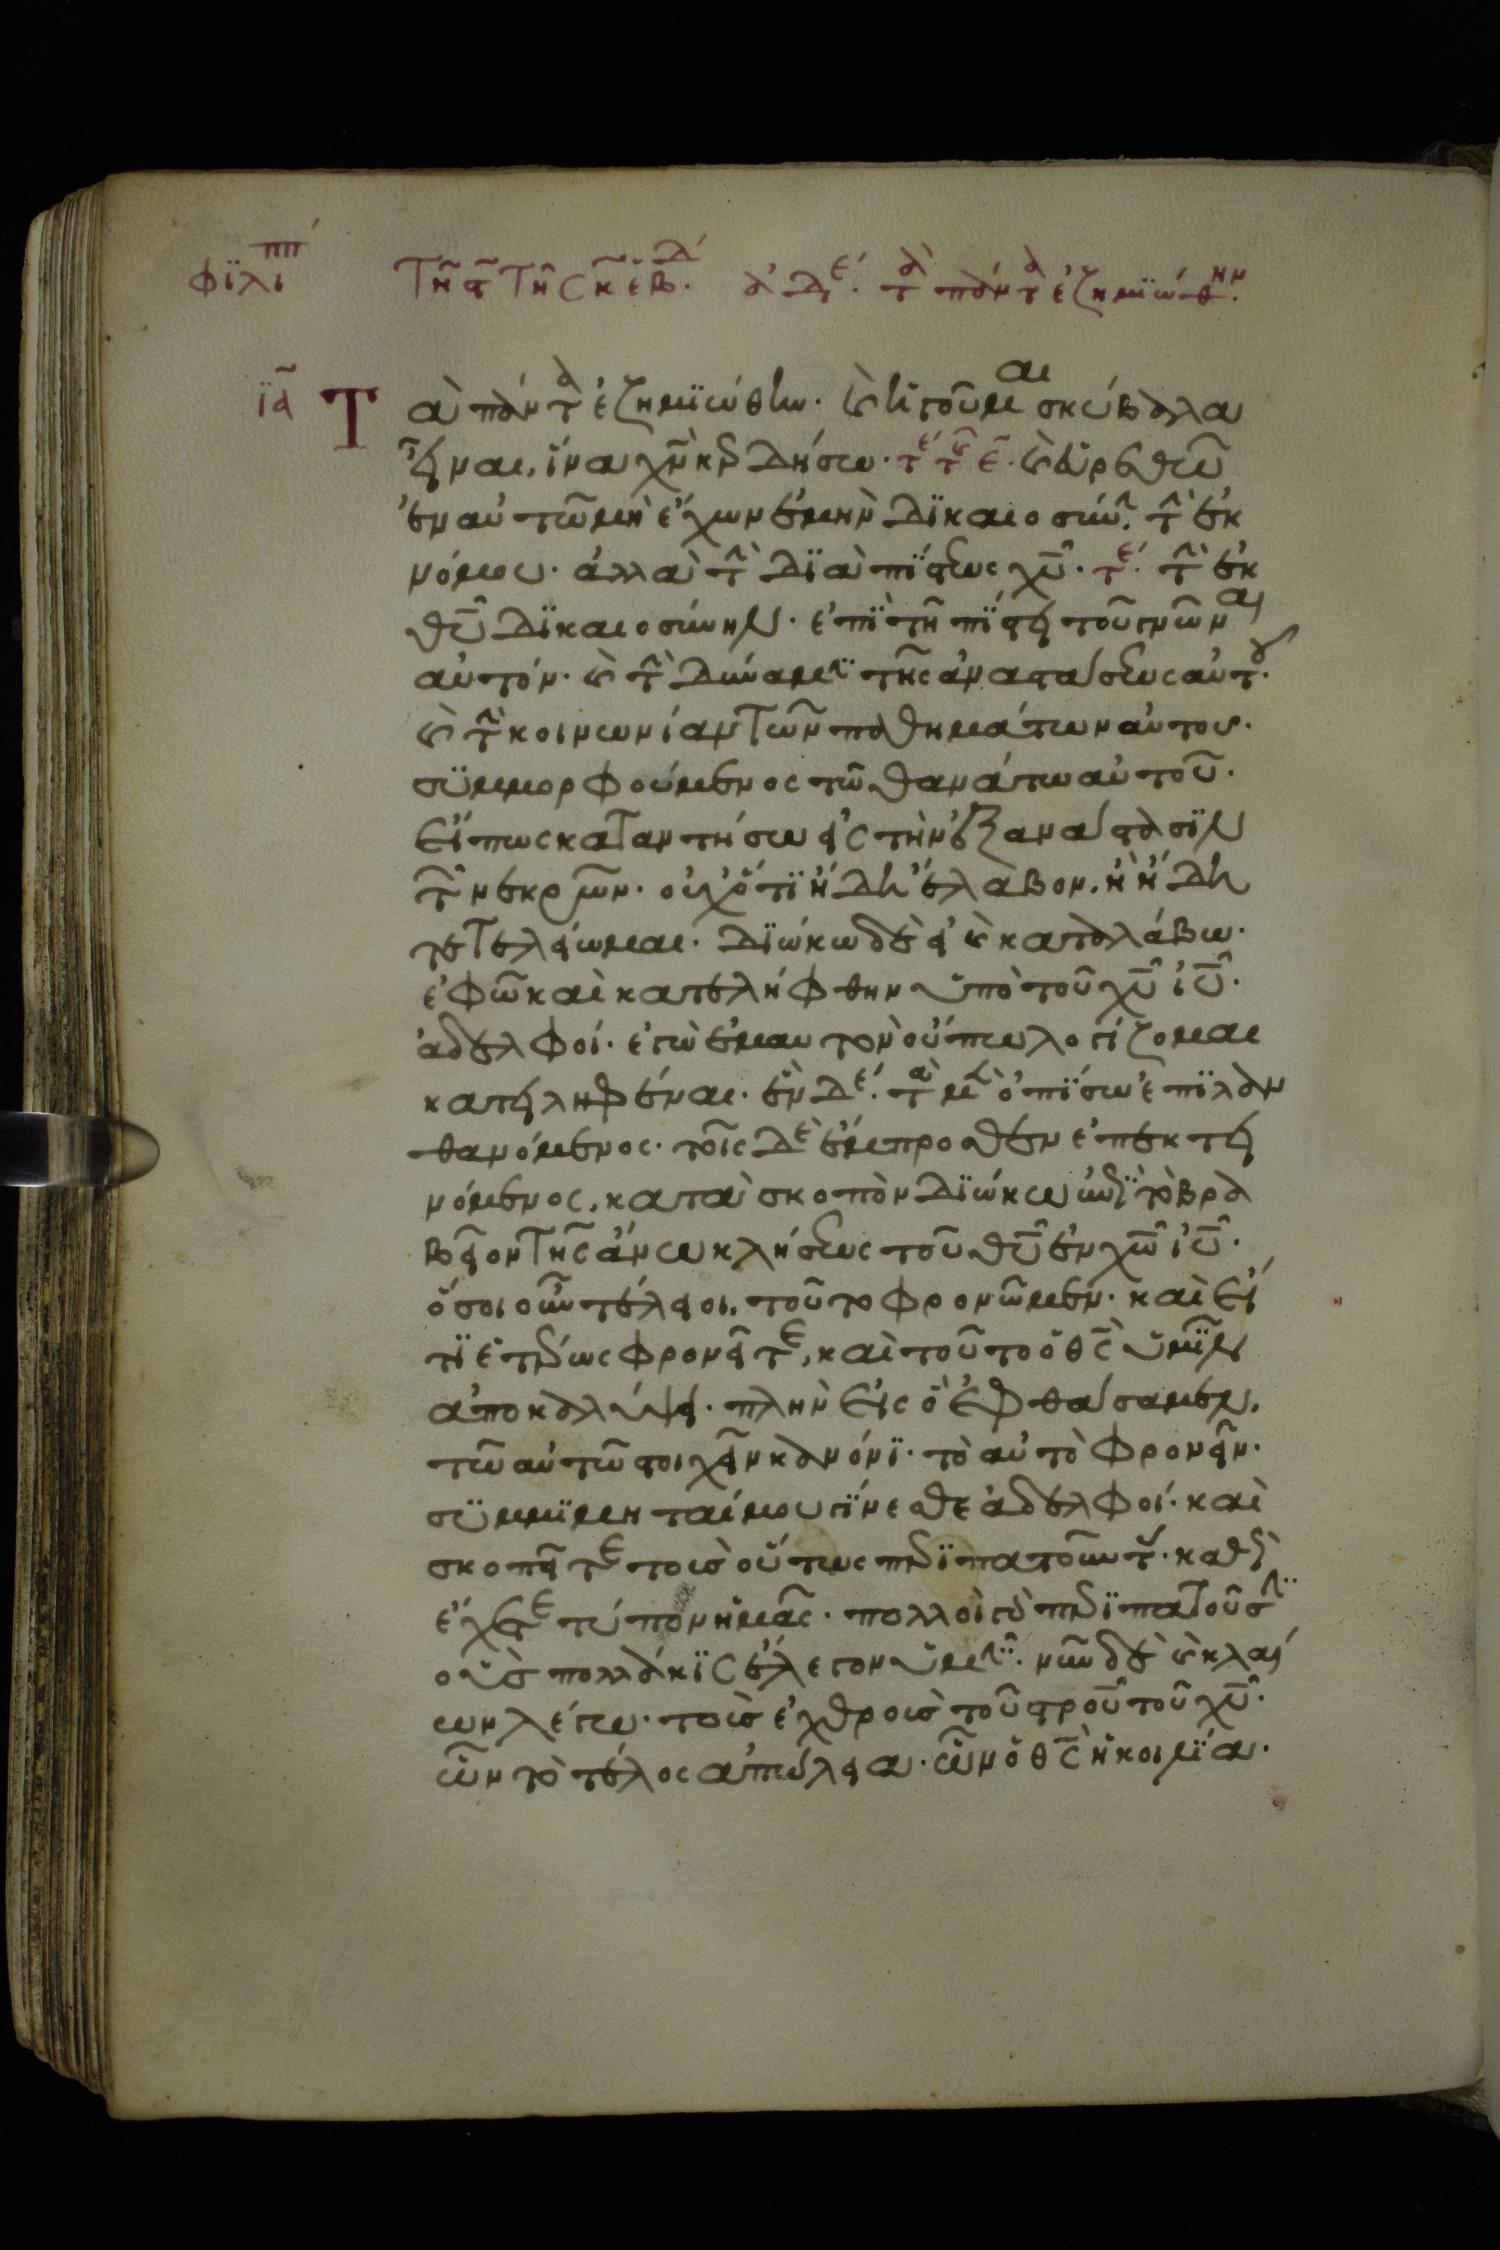 φϊλιππ Τῆ ϛ τῆς κ ἑβδ. ἀδε. τὰ πάντα ἐζημιώθην.
ϊα Τὰ πάντα ἐζημϊώθην. καὶ ἡγοῦμαι σκύβαλα
εἶναι, ἵνα χν κερδήσω. τέ τῆς ε. καὶ εὑρεθῶ
ἐν αὐτῶ μὴ ἔχων ἐμὴν δϊκαιοσύνην τὴν ἐκ
νόμου. ἀλλὰ τὴν δϊὰ πίστεως χυ. τέ. τὴν ἐκ
θυ δϊκαιοσύνην. ἐπῒ τῆ πίστει τοῦ γνῶναι
αὐτόν. καὶ τὴν δύναμϊν τῆς ἀναστάσεως αὐτοῦ.
καὶ τὴν κοινωνίαν τῶν παθημάτων αὐτου.
συμμορφούμενος τῶ θανάτω αὐτοῦ.
εἴπως καταντήσω εἰς τὴν ἐξανάστασϊν
τῶν νεκρῶν. οὐχ ὅτϊ ἤδη ἔλαβον. ἢ ἤδη
τετελείωμαι. δϊώκω δὲ εἰ καὶ καταλάβω.
ἐφ ῶ καὶ κατελήφθην ὑπὸ τοῦ χυ ιυ.
ἀδελφοί. ἐγὼ ἐμαυτὸν οὔπω λογίζομαι
κατειληφέναι. ἓν δέ. τὰ μὲν ὀπίσω ἐπϊλαν
θανόμενος. τοῖς δὲ ἔμπροσθεν ἐπεκτει
νόμενος, κατὰ σκοπὸν δϊώκω ἐπῒ τὸ βρα
βεῖον τῆς ἄνω κλήσεως τοῦ θυ ἐν χω ιυ.
ὅσοι οὖν τέλειοι. τοῦτο φρονῶμεν. καὶ εἴ
τϊ ἑτέρως φρονεῖτε, καὶ τοῦτο ὁ θς ὑμῖν
ἀποκαλύψει. πλὴν εἰς ὃ ἐφθάσαμεν,
τῶ αὐτῶ στοιχεῖν κανόνϊ. τὸ αὐτὸ φρονεῖν.
συμμϊμηταί μου γίνεσθε ἀδελφοί. καὶ
σκοπεῖτε τοὺς οὕτως περϊπατοῦντας. καθὼς
ἔχετε τύπον ἡμᾶς. πολλοὶ γὰρ περϊπατοῦσϊν
οὓς πολλάκϊς ἔλεγον ὑμϊν. νῦν δὲ καὶ κλαί
ων λέγω. τοὺς ἐχθροὺς τοῦ στρου τοῦ χυ.
ὧν τὸ τέλος ἀπώλεια. ὧν ὁ θς ἡ κοιλϊα.